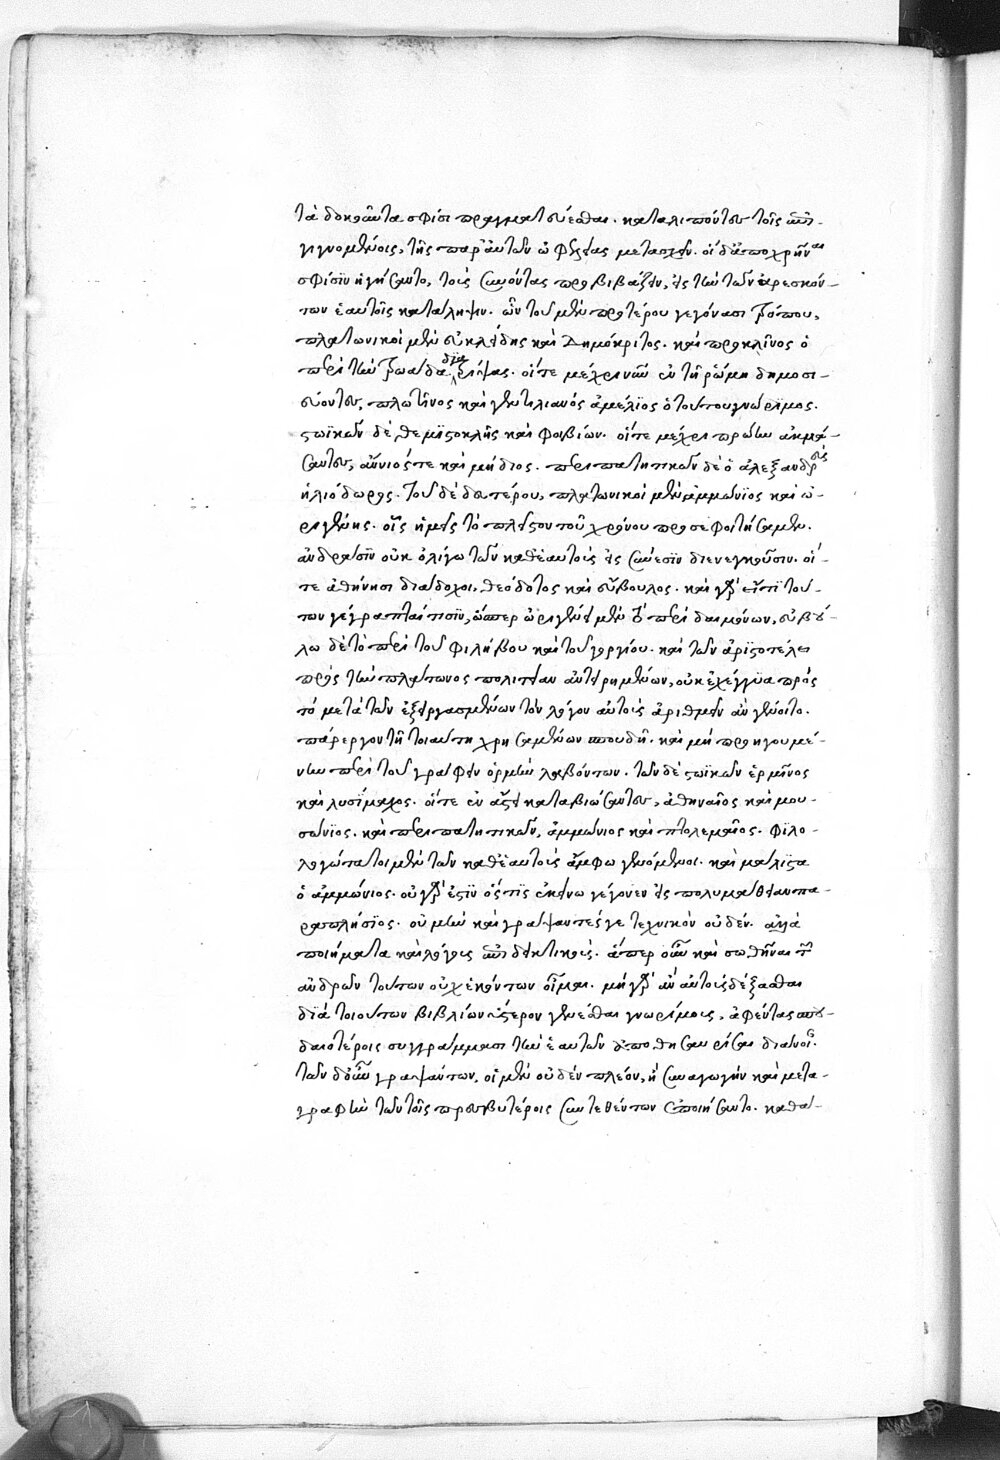 τὰ δοκοῦντα σφίσι πραγματεύεσθαι. καταλιπόντες τοῖς ἐπι-
γιγνομένοις, τῆς παρ' αὐτῶν ὠφελείας μετασχεῖν. οἱ δ' ἀποχρῆναι
σφίσιν ἡγήσαντο, τοὺς συνόντας προβιβάζειν, εἰς τὴν τῶν ἀρεσκόν-
των ἑαυτοῖς κατάληψιν. ὧν τοῦ μὲν προτέρου γεγόνασι τρόπου,
πλατωνικοὶ μὲν εὐκλείδης καὶ δημόκριτος. καὶ προκλῖνος ὁ
περὶ τὴν τρωάδα διατρίψας. οἵ τε μέχρι νῦν ἐν τῇ ῥώμῃ δημοσι-
εύοντες, πλωτῖνος καὶ γεντιλιανὸς ἀμέλιος ὁ τούτου γνώριμος.
στωϊκῶν δὲ, θεμιστοκλῆς καὶ φοιβίων. οἵ τε μέχρι πρώην ἀκμά-
σαντες, ἄννιός τε καὶ μήδιος. περιπατητικῶν δὲ ὁ ἀλεξανδρεὺς
ἡλιόδωρος. τοῦ δὲ δευτέρου, πλατωνικοὶ μὲν ἀμμώνιος καὶ ὠ-
ριγένης. οἷς ἡμεῖς τὸ πλεῖστον τοῦ χρόνου προσεφοιτήσαμεν.
ἀνδράσιν οὐκ ὀλίγῳ τῶν καθ' ἑαυτοὺς εἰς σύνεσιν διενεγκοῦσιν. οἵ-
τε ἀθήνησι διάδοχοι, θεόδοτος καὶ εὔβουλος. καὶ γὰρ εἴ τι του-
των γέγραπταί τισιν, ὥσπερ ὠριγένει μὲν τὸ περὶ δαιμόνων, εὐβού-
λῳ δὲ τὸ περὶ τοῦ φιλήβου καὶ τοῦ γοργίου. καὶ τῶν ἀριστοτέλει
πρὸς τὴν πλάτωνος πολιτείαν ἀντειρημένων, οὐκ ἐχέγγυα πρὸς
τὸ μετὰ τῶν ἐξειργασμένων τὸν λόγον αὐτοὺς ἀριθμεῖν ἂν γένοιτο.
πάρεργον τῇ τοιαύτῃ χρησαμένων σπουδῇ. καὶ μὴ προηγουμέ-
νην περὶ τοῦ γράφειν ὁρμὴν λαβόντων. τῶν δὲ στωϊκῶν ἑρμῖνος
καὶ λυσίμαχος. οἵ τε ἐν ἄστει καταβιώσαντες, ἀθηναῖος καὶ μου-
σώνιος. καὶ περιπατητικῶν, ἀμμώνιος καὶ πτολεμαῖος. φιλο-
λογώτατοι μὲν τῶν καθ' ἑαυτοὺς ἄμφω γενόμενοι. καὶ μάλιστα
ὁ ἀμμώνιος. οὐ γὰρ ἔστιν ὅς τις ἐκείνῳ γέγονεν εἰς πολυμάθειαν πα-
ραπλήσιος. οὐ μὴν καὶ γράψαντές γε τεχνικὸν οὐδέν. ἀλλὰ
ποιήματα καὶ λόγους ἐπιδεικτικούς. ἅπερ οὖν καὶ σωθῆναι τῶν
ἀνδρῶν τούτων οὐχ ἑκόντων οἶμαι. μὴ γὰρ ἂν αὐτοὺς δέξασθαι
διὰ τοιούτων βιβλίων ὕστερον γενέσθαι γνωρίμους, ἀφέντας σπου-
δαιοτέροις συγγράμμασι τὴν ἑαυτῶν ἀποθησαυρίσαι διάνοιαν.
τῶν δ' οὖν γραψάντων, οἱ μὲν οὐδὲν πλέον, ἢ συναγωγὴν καὶ μετα-
γραφὴν τῶν τοῖς πρεσβυτέροις συντεθέντων ἐποιήσαντο. καθά-